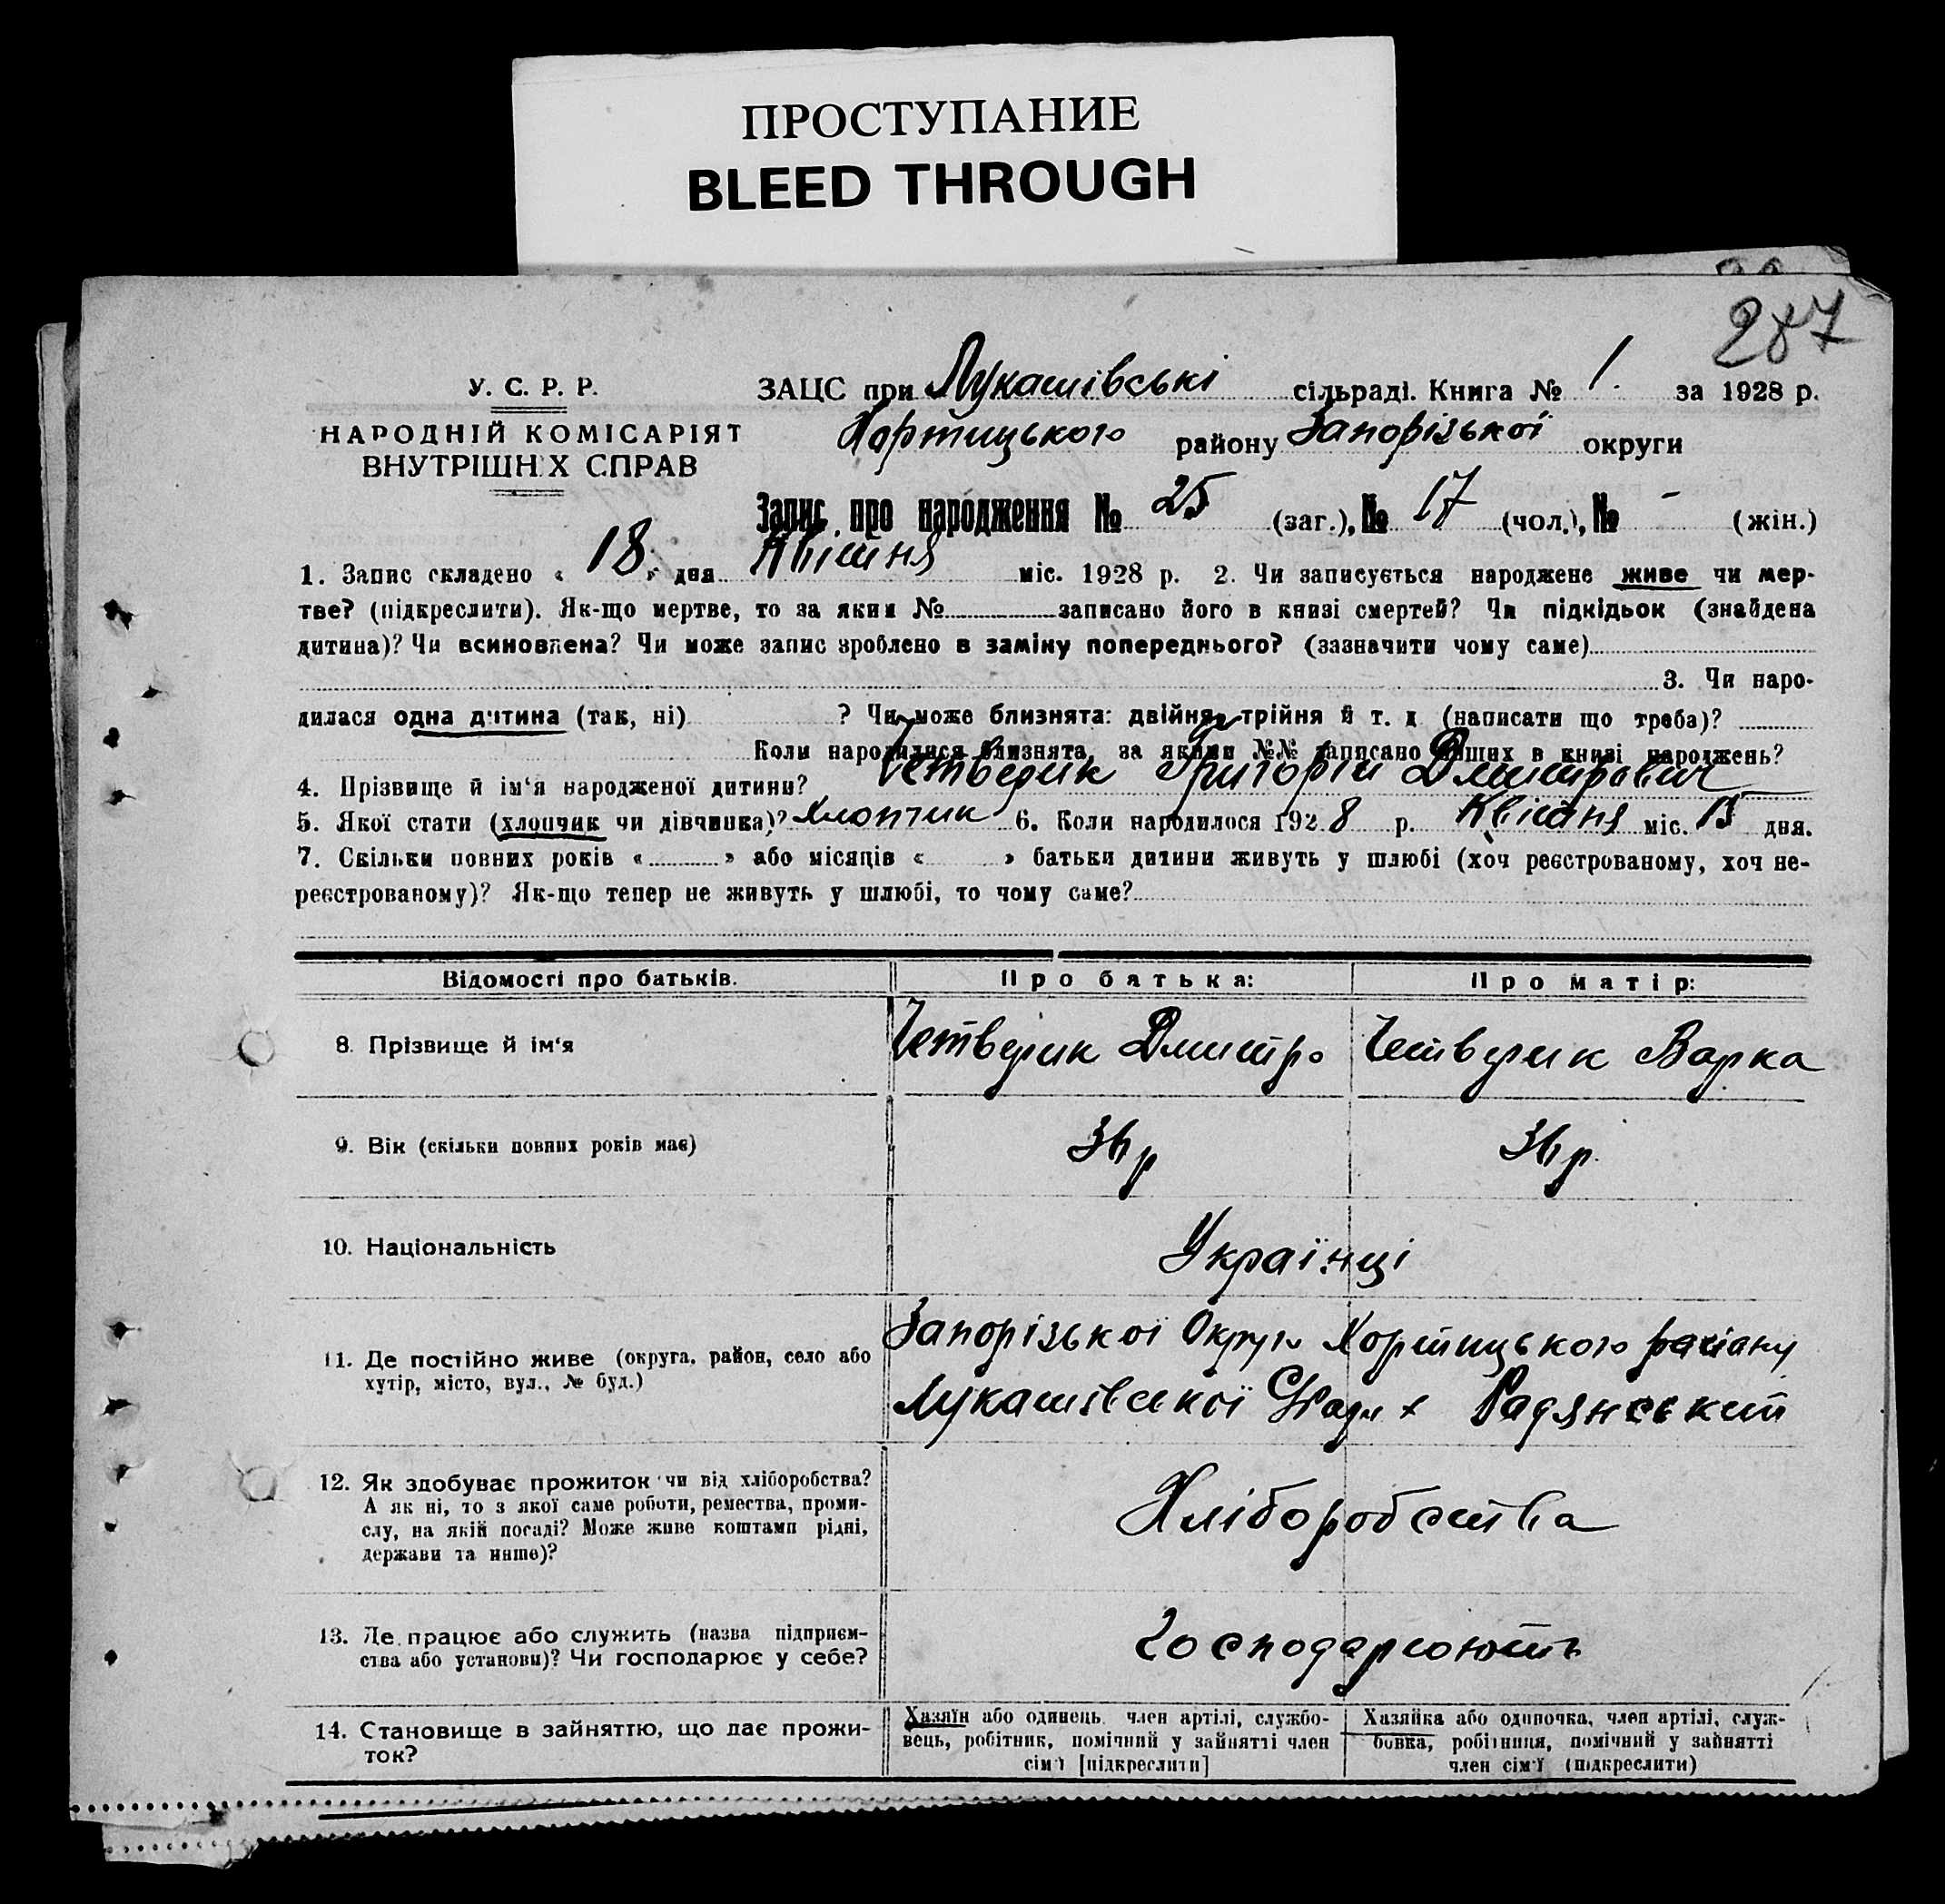 ПРОСТУПАНИЕ
BLEED THROUGH
287
У. С. Р. Р.
НАРОДНІЙ КОМІСАРІЯТ
ВНУТРІШНІХ СПРАВ
ЗАЦС при Лукашівські сільраді. Книга № 1. за 1928 р.
Хортицького району Запорізької округи
Запис про народження № 25 (заг.), № 17 (чол.), № - (жін.)
1. Запис складено « 18 » дня Квітня міс. 1928 р. 2. Чи записується народжене живе чи мер-
тве? (підкреслити). Як-що мертве, то за яким № записано його в книзі смертей? Чи підкідьок (знайдена
дитина)? Чи всиновлена? Чи може запис зроблено в заміну попереднього? (зазначити чому саме)
3. Чи наро-
дилася одна дитина (так, ні) ? Чи може близнята: двійня, трійня й т. д (написати що треба)?
Коли народилися близнята, за якими №№ записано інших в книзі народжень?
4. Прізвище й ім'я народженої дитини? Четверик Григорій Дмитрович
5. Якої стати (хлопчик чи дівчинка)? Хлопчик 6. Коли народилося 1928 р. Квітня міс. 15 дня.
7. Скільки повних років « » або місяців « » батьки дитини живуть у шлюбі (хоч реєстрованому, хоч не-
реєстрованому)? Як-що тепер не живуть у шлюбі, то чому саме?
Відомості про батьків. Про батька: Про матір:
8. Прізвище й ім'я Четверик Дмитро Четверик Варка
9. Вік (скільки повних років має) 36 р 36 р.
10. Національність Українці
11. Де постійно живе (округа, район, село або
хутір, місто, вул., № буд.)
Запорізької Округи Хортицького району
Лукашівської С/Ради х Радянський
12. Як здобуває прожиток чи від хліборобства?
А як ні, то з якої саме роботи, ремества, проми-
слу, на якій посаді? Може живе коштами рідні,
держави та инше)?
Хліборобства
13. Де працює або служить (назва підприєм-
ства або установи)? Чи господарює у себе?
Господарюють
14. Становище в зайняттю, що дає прожи-
ток?
Хазяїн або одинець, член артілі, службо-
вець, робітник, помічний у зайнятті член
сім'ї [підкреслити]
Хазяйка або одиночка, член артілі, служ-
бовка, робітниця, помічний у зайнятті
член сім'ї (підкреслити)